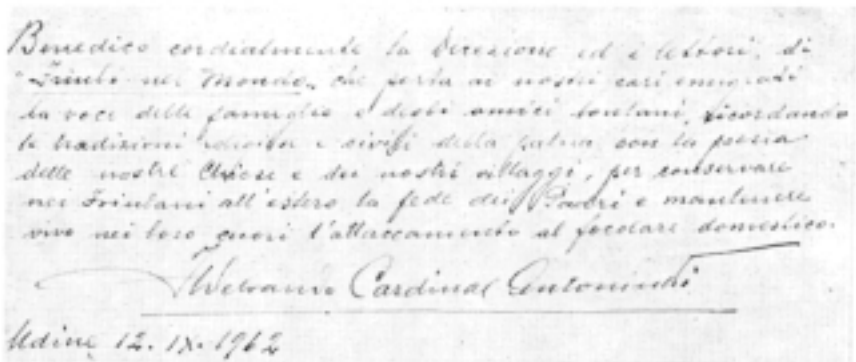 Benedico cordialmente la Direzione ed i lettori di
"Friuli nel Mondo", che porta ai nostri cari emigrati
la voce delle famiglie e degli amici lontani, ricordando
le tradizioni e civili della patria con la poesia
delle nostre Chiese e dei nostri villaggi, per conservare
nei Friulani all'estero la fede dei Padri e mantenere
vivo nei loro cuori l'attaccamento al focolare domestico.
Ildebrando Cardinal Antoniutti
Udine 12. IX. 1962